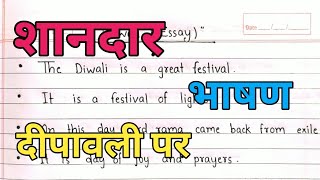 Essay)"
Date
शानदार
The Diwali is a great festival.
It is a festival of
भाषण
this day rama came back from exile
दीपावली पर
is day of joy and prayers.